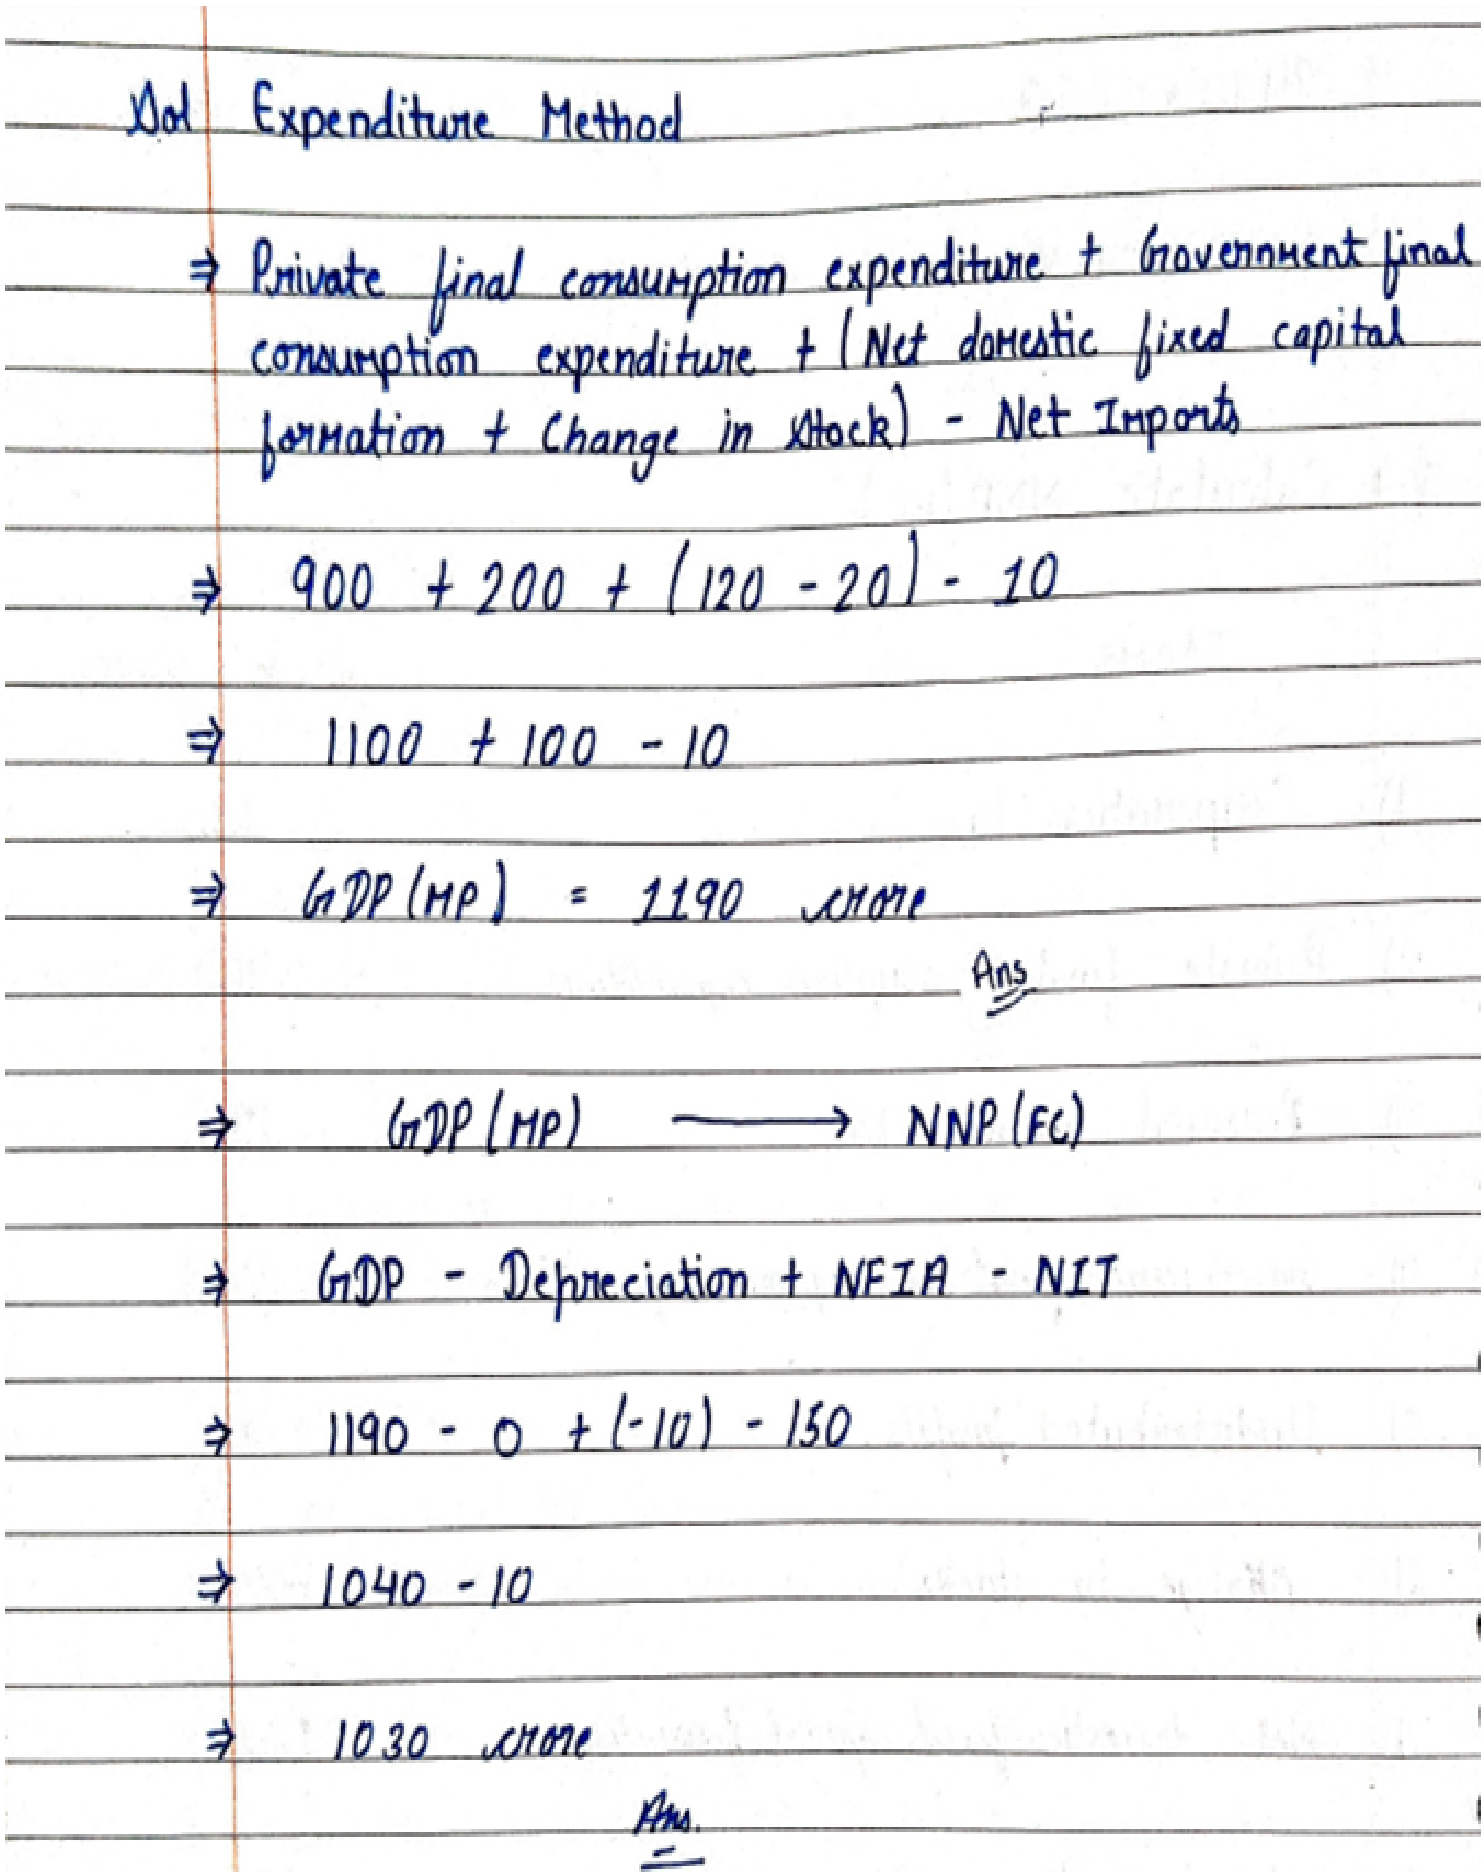 Sol Expenditure Method
⇒ Private final consumption expenditure + Government final
consumption expenditure + (Net domestic fixed capital
formation + Change in Stock) - Net Imports
⇒ 900 + 200 + (120 - 20) - 10
⇒ 1100 + 100 - 10
⇒ GDP (MP) = 1190 crore
Ans
⇒ GDP (MP) ⟶ NNP (FC)
⇒ GDP - Depreciation + NFIA - NIT
⇒ 1190 - 0 + (-10) - 150
⇒ 1040 - 10
⇒ 1030 crore
Ans.